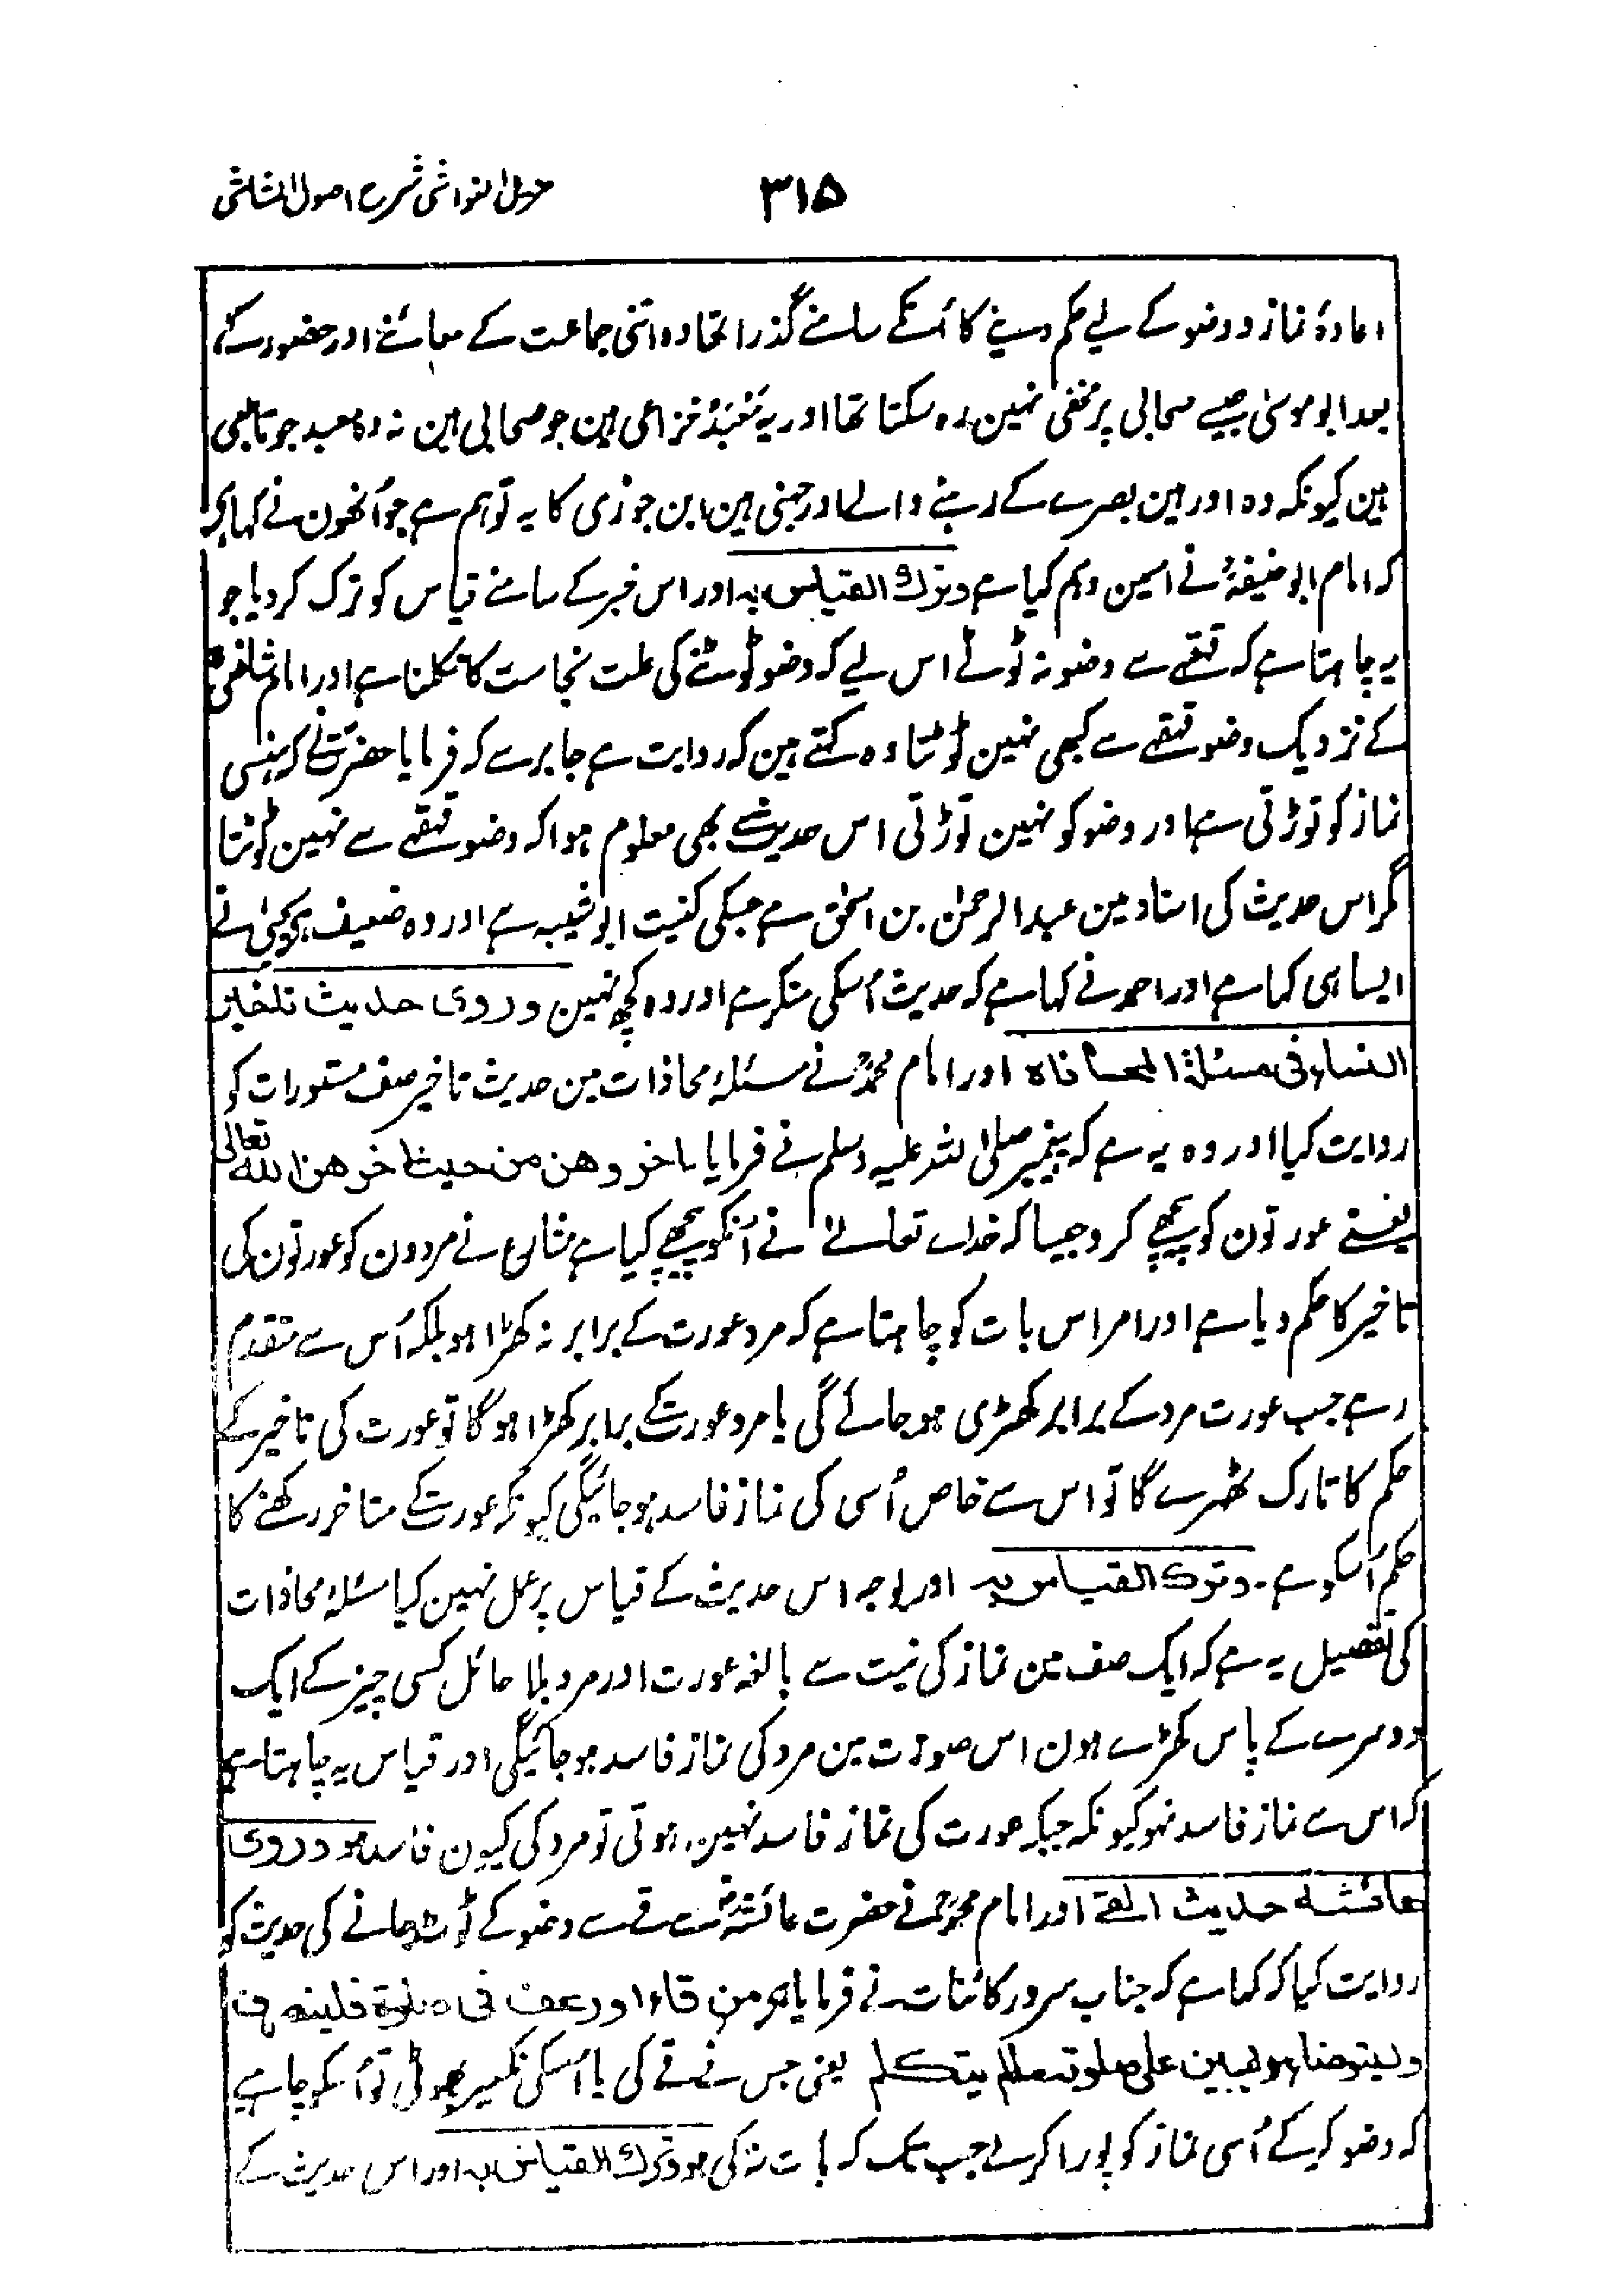 مزیل الغواشی شرح اصول الشاشی
۳۱۵
اعادۂ نماز و وضو کے لیے حکم دینے کا اُنکے سامنے گذرا تھا وہ اتنی جماعت کے معائنے اور حضور کے
بعد ابو موسیٰ جیسے صحابی پر مخفی نہین رہ سکتا تھا اور یہ مَعْبَدُ خزاعی ہین جو صحابی ہین نہ وہ معبد جو تابعی
ہین کیونکہ وہ اور ہین بصرے کے رہنے والے اور جہنی ہین ابن جوزی کا یہ توہم ہے جو اُنھون نے کہا ہے
کہ امام ابو حنیفہؒ نے اسمین وہم کیا ہے وترك القیاس به اور اس خبر کے سامنے قیاس کو ترک کردیا جو
یہ چاہتا ہے کہ قہقہے سے وضو نہ ٹوٹے اس لیے کہ وضو ٹوٹنے کی علت نجاست کا نکلنا ہے اور امام شافعیؒ
کے نزدیک وضو قہقہے سے کبھی نہین ٹوٹتا وہ کہتے ہین کہ روایت ہے جابر سے کہ فرمایا حضرتؐ نے کہ ہنسی
نماز کو توڑتی ہے اور وضو کو نہین توڑتی اس حدیث سے بھی معلوم ہوا کہ وضو قہقہے سے نہین ٹوٹتا
مگر اس حدیث کی اسناد مین عبد الرحمٰن بن اسحٰق ہے جسکی کنیت ابو شیبہ ہے اور وہ ضعیف ہے یحییٰ نے
ایسا ہی کہا ہے اور احمد نے کہا ہے کہ حدیث اُسکی منکر ہے اور وہ کچھ نہین وروی حدیث تاخیر
النساء فی مسئلة المحاذاة اور امام محمدؒ نے مسئلۂ محاذات مین حدیث تاخیر صف مستورات کو
روایت کیا اور وہ یہ ہے کہ پیغمبر صلی اللہ علیہ وسلم نے فرمایا اخروهن من حیث اخرهن الله تعالی
یعنے عورتون کو پیچھے کرو جیسا کہ خدا تعالےٰ نے اُنکو پیچھے کیا ہے شارع نے مردون کو عورتون کی
تاخیر کا حکم دیا ہے اور امر اس بات کو چاہتا ہے کہ مرد عورت کے برابر نہ کھڑا ہو بلکہ اُس سے متقدم
رہے جب عورت مرد کے برابر کھڑی ہو جائے گی یا مرد عورت کے برابر کھڑا ہوگا تو عورت کی تاخیر کے
حکم کا تارک ٹھہرے گا تو اس سے خاص اُسی کی نماز فاسد ہو جائیگی کیونکہ عورت کے متاخر رکھنے کا
حکم اُسکو ہے۔ وترك القیاس به اور بوجہ اس حدیث کے قیاس پر عمل نہین کیا مسئلۂ محاذات
کی تفصیل یہ ہے کہ ایک صف مین نماز کی نیت سے بالغہ عورت اور مرد بلا حائل کسی چیز کے ایک
دوسرے کے پاس کھڑے ہون اس صورت مین مرد کی نماز فاسد ہو جائیگی اور قیاس یہ چاہتا ہے
کہ اس سے نماز فاسد نہو کیونکہ جبکہ عورت کی نماز فاسد نہین ہوتی تو مرد کی کیون فاسد ہو وروی
عائشة حدیث القے اور امام محمدؒ نے حضرت عائشہؓ سے قے سے وضو کے ٹوٹ جانے کی حدیث کو
روایت کیا کہ کہا ہے کہ جناب سرور کائنات نے فرمایا ہے من قاء او رعف فی صلوٰة فلینصرف
ولیتوضأ ولیبن علی صلوٰته مالم یتکلم یعنی جس نے قے کی یا اُسکی نکسیر پھوٹی تو اُسکو چاہیے
کہ وضو کرکے اُسی نماز کو پورا کرلے جب تک کہ بات نہ کی ہو وترك القیاس به اور اس حدیث کے